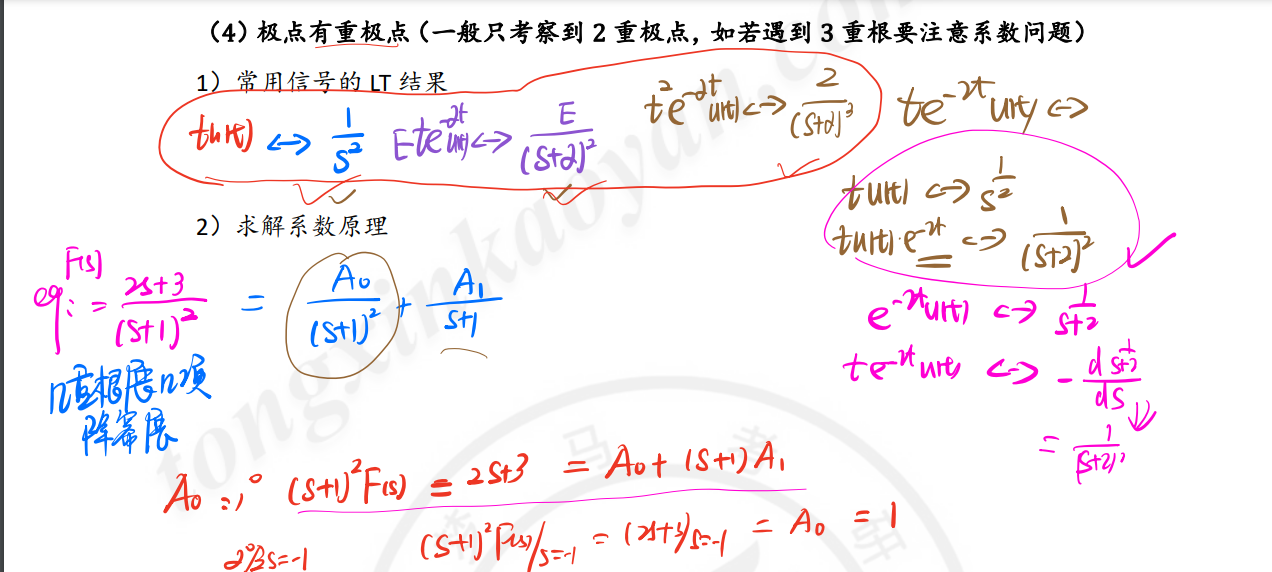 （4）极点有重极点（一般只考察到 2 重极点，如若遇到 3 重根要注意系数问题）
1）常用信号的 LT 结果
tu(t) ↔ 1/s² Ete^{-2t}u(t) ↔ E/(s+2)² t²e^{-2t}u(t) ↔ 2/(s+2)³ te^{-2t}u(t) ↔
tu(t) ↔ 1/s²
tu(t)·e^{-2t} ↔ 1/(s+2)²
e^{-2t}u(t) ↔ 1/(s+2)
te^{-2t}u(t) ↔ - d 1/(s+2) / ds
= 1/(s+2)²
2）求解系数原理
eg: F(s) = (2s+3)/(s+1)² = A₀/(s+1)² + A₁/(s+1)
n重根展n项
降幂展
A₀ : 1° (s+1)²F(s) = 2s+3 = A₀ + (s+1)A₁
2° 令s=-1 (s+1)²F(s)|s=-1 = (2s+3)|s=-1 = A₀ = 1
tongxinkaoyan.com
马 老